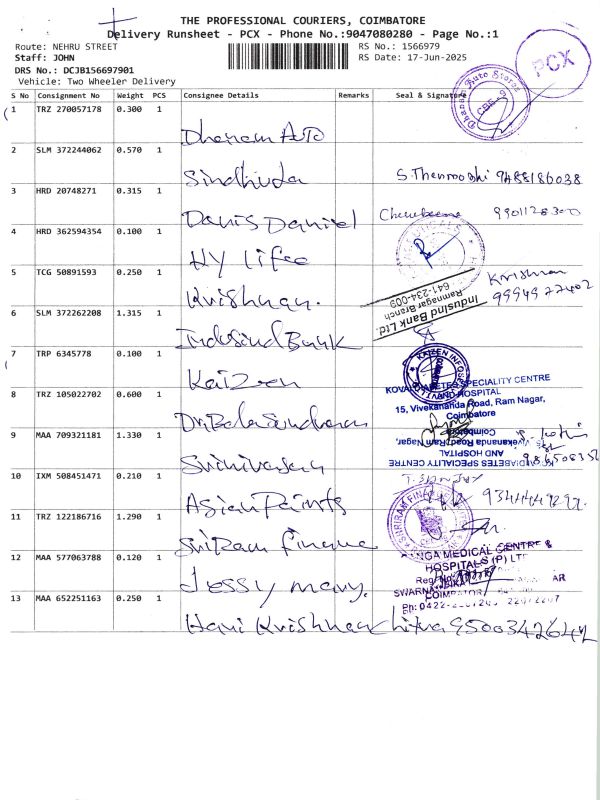 THE PROFESSIONAL COURIERS, COIMBATORE
Delivery Runsheet - PCX - Phone No.:9047080280 - Page No.:1
Route: NEHRU STREET
RS No.: 1566979
Staff: JOHN
RS Date: 17-Jun-2025
DRS No.: DCJB156697901
Vehicle: Two Wheeler Delivery
PCX
Dhanam Auto Stores
CBE-9
S No Consignment No Weight PCS Consignee Details Remarks Seal & Signature
1 TRZ 270057178 0.300 1
Dhanam Auto
2 SLM 372244062 0.570 1
Sindhuda S. Thenmozhi 9488186038
3 HRD 20748271 0.315 1
Danis Daniel
4 HRD 362594354 0.100 1
Hy life
5 TCG 50891593 0.250 1
Krishnan. Krishnan
9994977402
IndusInd Bank Ltd.
Ramnagar Branch
641-234-009
6 SLM 372262208 1.315 1
IndusInd Bank
7 TRP 6345778 0.100 1
Kaizen
KAIZEN INFOSERV
8 TRZ 105022702 0.600 1
KOVAI DIABETES SPECIALITY CENTRE
AND HOSPITAL
15, Vivekananda Road, Ram Nagar,
Coimbatore
Dr. Bala Sundaram
9 MAA 709321181 1.330 1
Coimbatore
Vivekananda Road, Ram Nagar,
AND HOSPITAL
DIABETES SPECIALITY CENTRE
Srinivasan
10 IXM 508451471 0.210 1
Asian Paints
11 TRZ 122186716 1.290 1
SRIRAM FINANCE
Sriram finance
12 MAA 577063788 0.120 1
GANGA MEDICAL CENTRE &
HOSPITALS (P) LTD
Jessy mary.
13 MAA 652251163 0.250 1
COIMBATORE
Hari Krishnan Chitra 9500342642